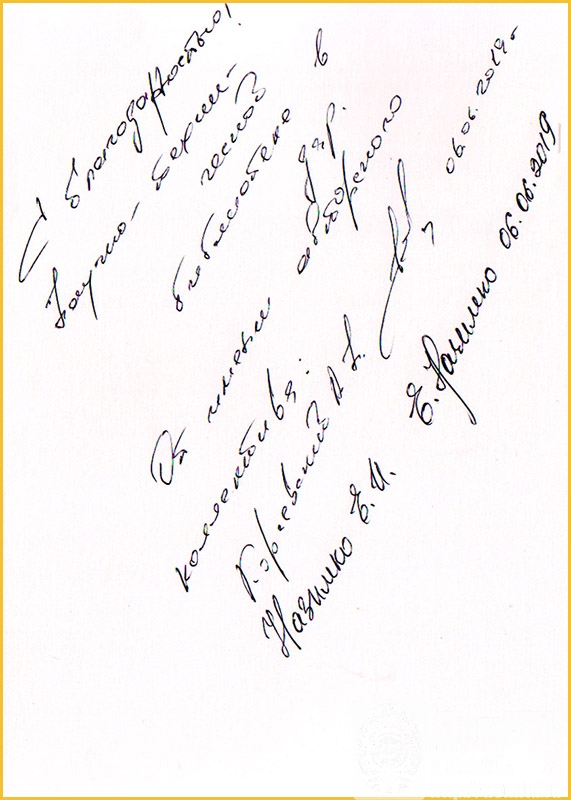 С благодарностью!
Научно-техни-
ческой
библиотеке в
дар.
От имени авторского
коллектива:
Корчевский А.Н. 06.06.2019г
Назимко Е.И. Е.Назимко 06.06.2019